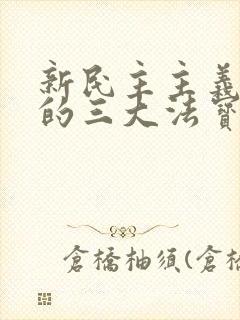 新民主主義
的三大法寶
倉橋柚須(倉橋